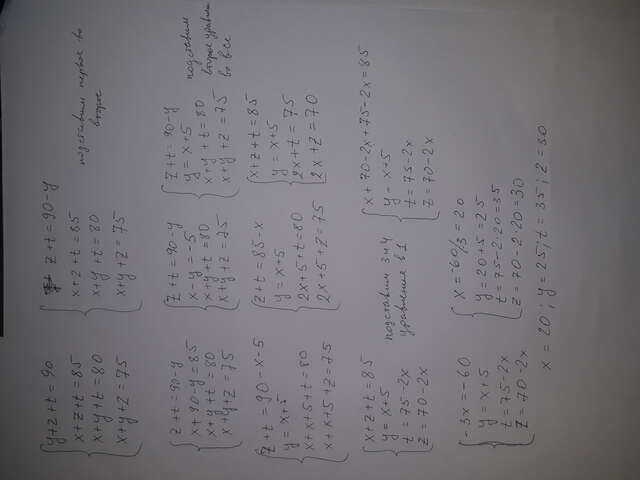 y+z+t=90
x+z+t=85
x+y+t=80
x+y+z=75
z+t=90-y
x+z+t=85
x+y+t=80
x+y+z=75
подставим первое во
второе
z+t=90-y
x+90-y=85
x+y+t=80
x+y+z=75
z+t=90-y
x-y=-5
x+y+t=80
x+y+z=75
z+t=90-y
y=x+5
x+y+t=80
x+y+z=75
подставим
второе уравнен
во все
z+t=90-x-5
y=x+5
x+x+5+t=80
x+x+5+z=75
z+t=85-x
y=x+5
2x+5+t=80
2x+5+z=75
x+z+t=85
y=x+5
2x+t=75
2x+z=70
x+z+t=85
y=x+5
t=75-2x
z=70-2x
подставим 3 и 4
уравнения в 1
x+70-2x+75-2x=85
y=x+5
t=75-2x
z=70-2x
-3x=-60
y=x+5
t=75-2x
z=70-2x
x=-60/3=20
y=20+5=25
t=75-2·20=35
z=70-2·20=30
x=20; y=25; t=35; z=30